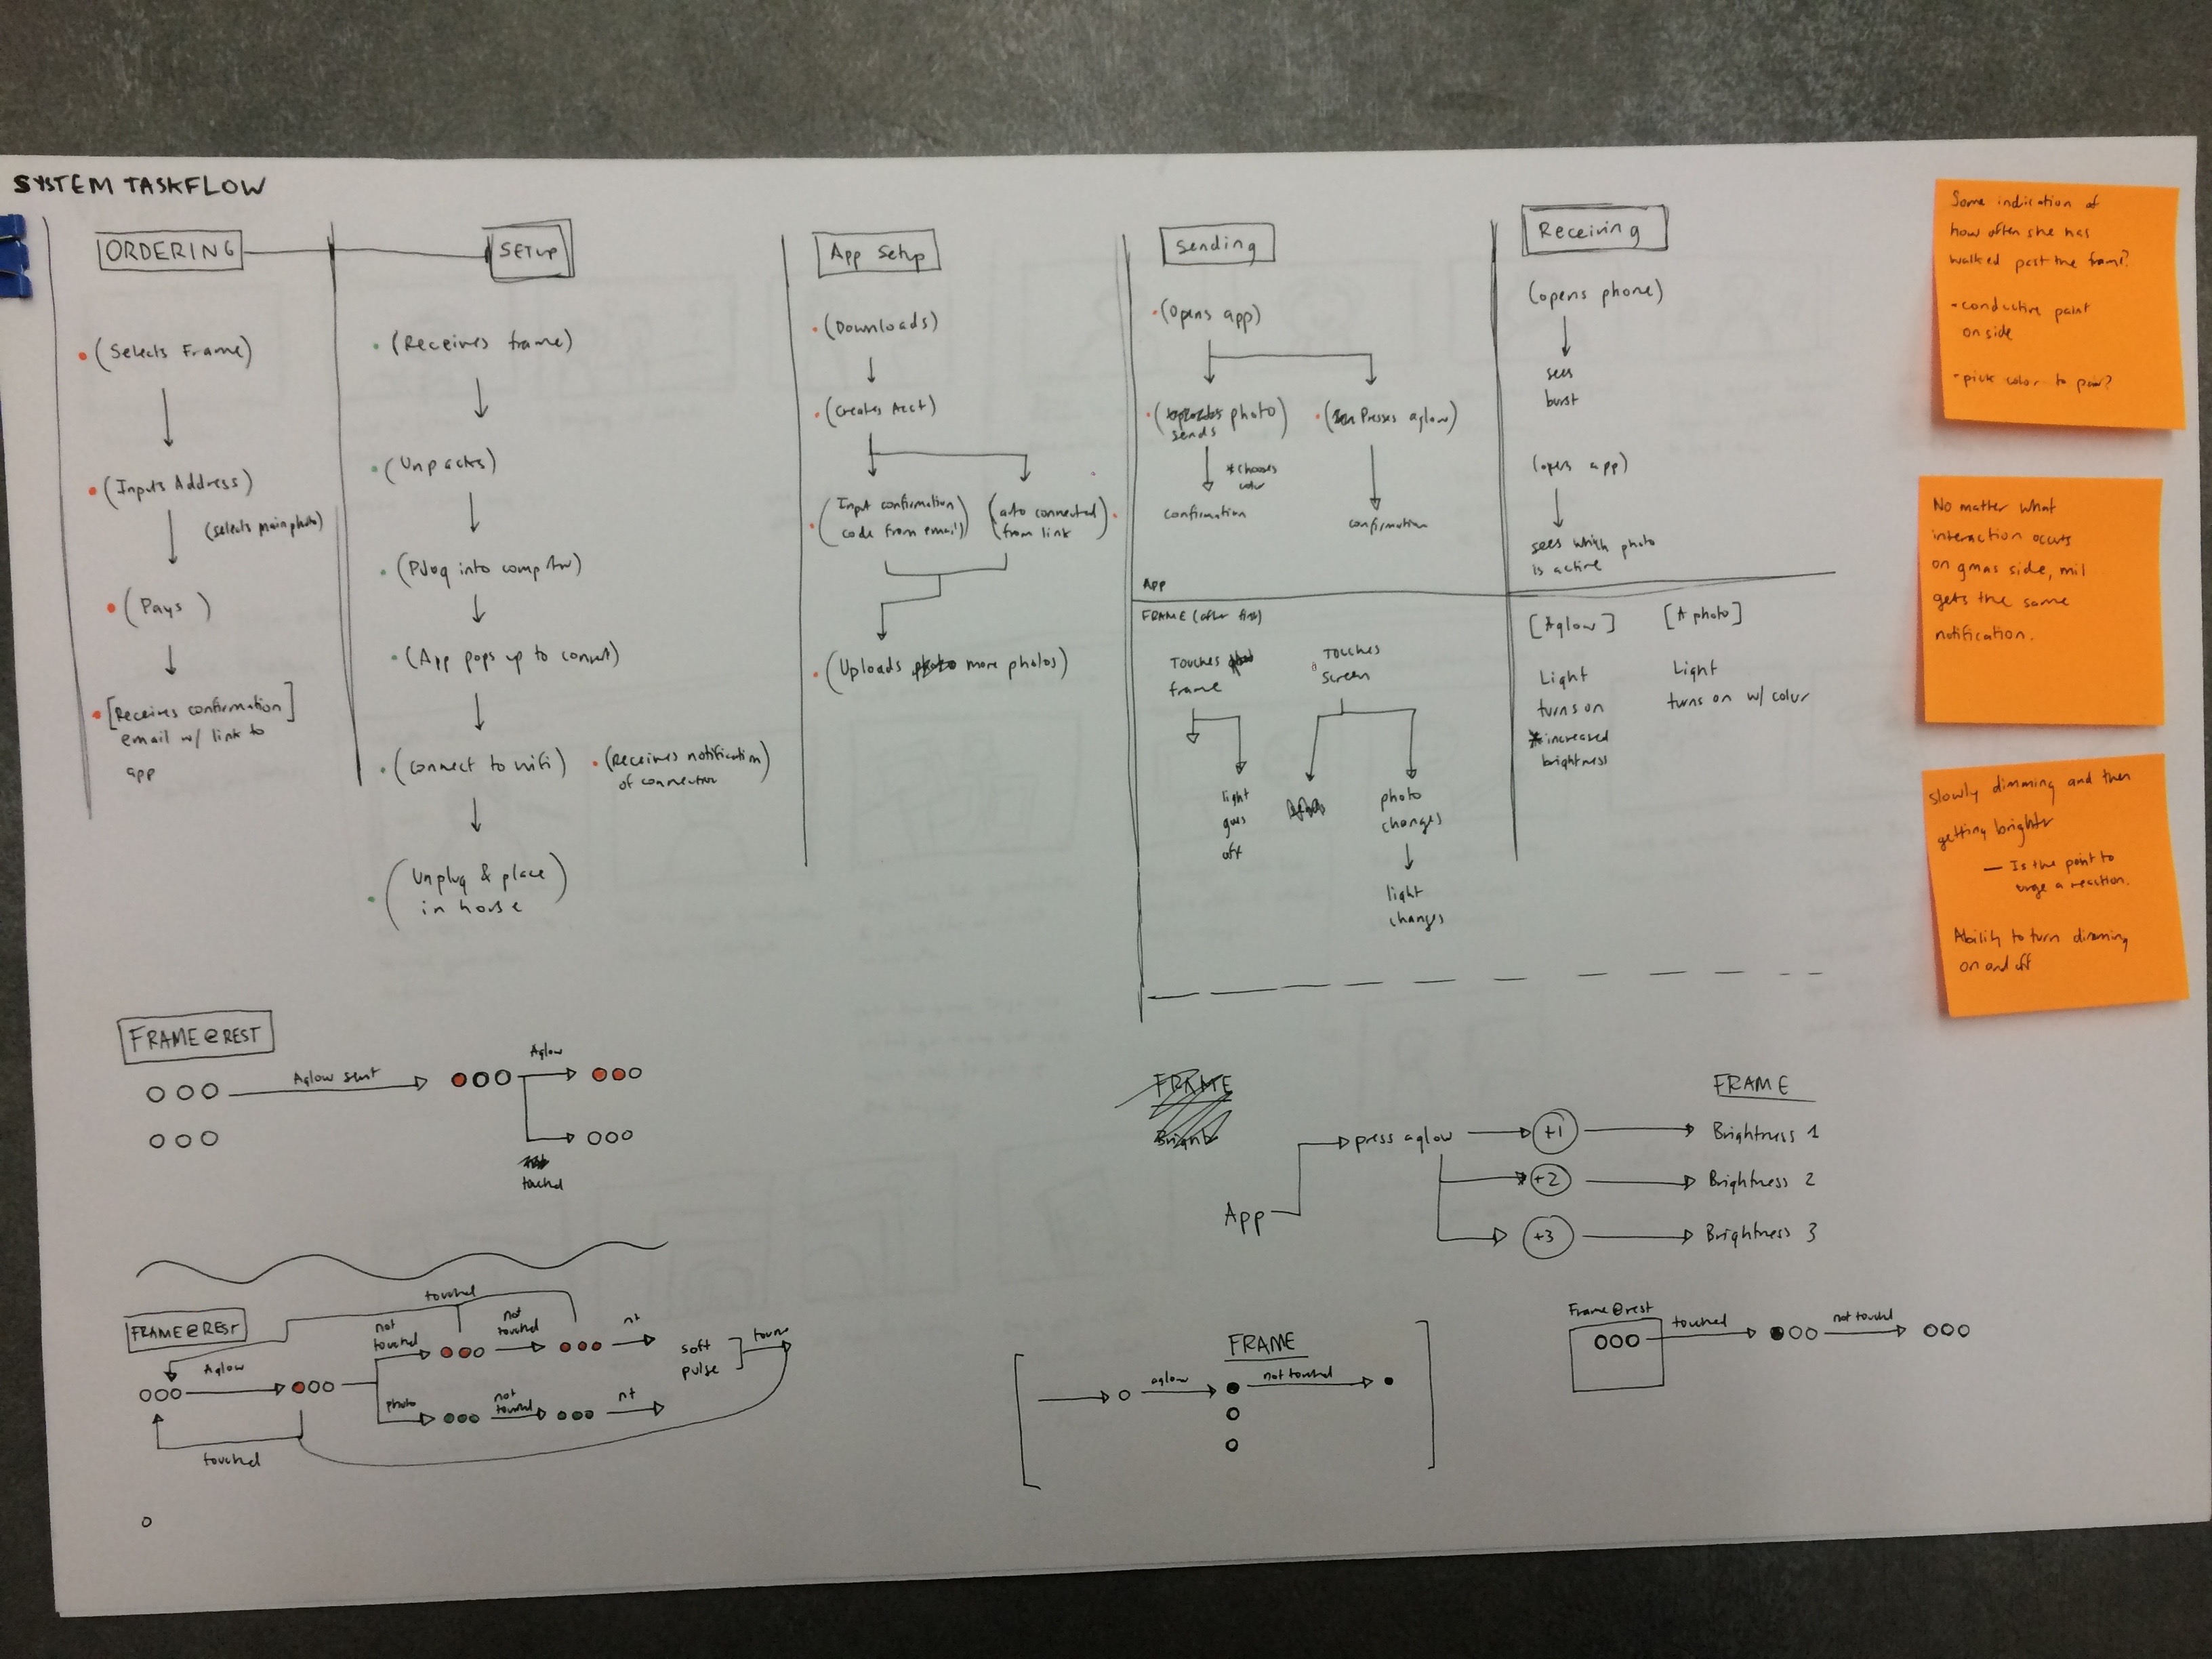 SYSTEM TASKFLOW
ORDERING
(Selects Frame)
(Inputs Address)
(selects main photo)
(Pays)
[Receives confirmation]
email w/ link to
app
SETUP
(Receives frame)
(Unpacks)
(Plug into computer)
(App pops up to connect)
(connect to wifi)
(receives notification
of connection)
(Unplug & place
in house)
App Setup
(Downloads)
(Creates Acct)
(Input confirmation
code from email)
(auto connected
from link)
(Uploads more photos)
Sending
(Opens app)
(photo)
sends
*chooses
color
confirmation
(Presses aglow)
confirmation
App
FRAME (after first)
Touches
frame
light
goes
off
Touches
screen
photo
changes
light
changes
Receiving
(opens phone)
sees
burst
(opens app)
sees which photo
is active
[Aglow]
Light
turns on
*increased
brightness
[A photo]
Light
turns on w/ color
Some indication of
how often she has
walked past the frame?
- conductive paint
on side
- pick color to pair?
No matter what
interaction occurs
on gmas side, mil
gets the same
notification.
Slowly dimming and then
getting brighter
— Is the point to
urge a reaction.
Ability to turn dimming
on and off
FRAME@REST
Aglow sent
Aglow
touched
FRAME
Bright
App
press aglow
+1
+2
+3
FRAME
Brightness 1
Brightness 2
Brightness 3
FRAME@REST
touched
Aglow
not
touched
not
touched
nt
soft
pulse
photo
not
touched
nt
touched
FRAME
aglow
not touched
Frame@rest
touched
not touched